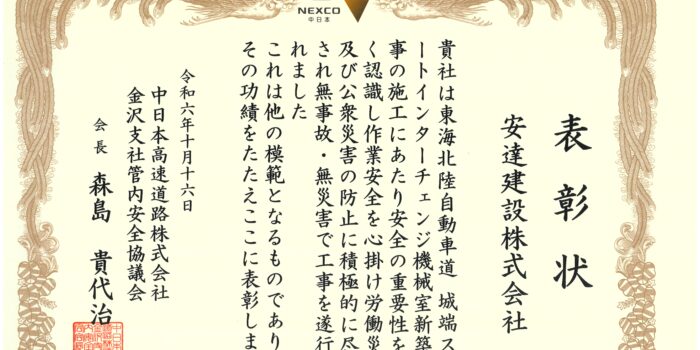 NEXCO
中日本
表彰状
安達建設株式会社
貴社は東海北陸自動車道 城端ス
ートインターチェンジ機械室新築
事の施工にあたり安全の重要性を
く認識し作業安全を心掛け労働災
及び公衆災害の防止に積極的に尽
され無事故・無災害で工事を遂行
れました
これは他の模範となるものであり
その功績をたたえここに表彰しま
令和六年十月十六日
中日本高速道路株式会社
金沢支社管内安全協議会
会長 森島 貴代治